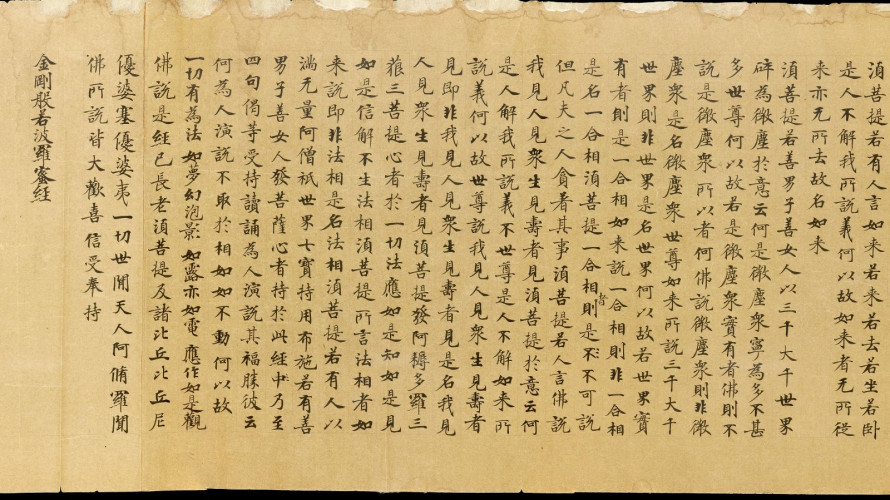 湏菩提若有人言如来若来若去若坐若卧
是人不解我所說義何以故如来者无所従
来亦无所去故名如来
湏菩提若善男子善女人以三千大千世界
碎為微塵於意云何是微塵衆寧為多不甚
多世尊何以故若是微塵衆實有者佛則不
說是微塵衆所以者何佛說微塵衆則非微
塵衆是名微塵衆世尊如来所說三千大千
世界則非世界是名世界何以故若世界實
有者則是一合相如来說一合相則非一合相
是名一合相湏菩提一合相則者是不可說
但凡夫之人貪著其事湏菩提若人言佛說
我見人見衆生見壽者見湏菩提於意云何
是人解我所說義不世尊是人不解如来所
說義何以故世尊說我見人見衆生見壽者
見即非我見人見衆生見壽者見是名我見
人見衆生見壽者見湏菩提發阿耨多羅三
藐三菩提心者於一切法應如是知如是見
如是信解不生法相湏菩提所言法相者如
来說即非法相是名法相湏菩提若有人以
滿无量阿僧祇世界七寶持用布施若有善
男子善女人發菩薩心者持於此經乃至
四句偈等受持讀誦為人演說其福勝彼云
何為人演說不取於相如如不動何以故
一切有為法如夢幻泡影如露亦如電應作如是觀
佛說是經已長老湏菩提及諸比丘比丘尼
優婆塞優婆夷一切世閒天人阿脩羅聞
佛所說皆大歡喜信受奉持
金剛般若波羅蜜經